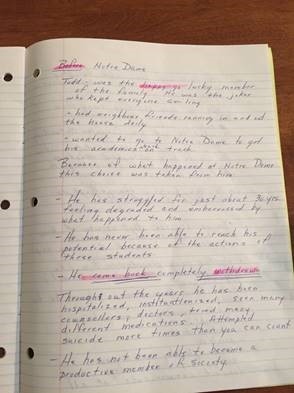 Before Notre Dame
Todd - was the happy go lucky member
of the family. He was the joker
who kept everyone smiling
- had neighbour friends running in and out
the house daily
- wanted to go to Notre Dame to get
his academics back on track
Because of what happened at Notre Dame
this choice was taken from him.
- He has struggled for just about 30 yrs
feeling degraded and embarrassed by
what happened to him.
- He has never been able to reach his
potential because of the actions of
these students
- He came back completely withdrawn
Throughout the years he has been
hospitalized, institutionalized, seen many
counsellors, doctors, tried many
different medications. Attempted
suicide more times than you can count
- He has not been able to become a
productive member of society.